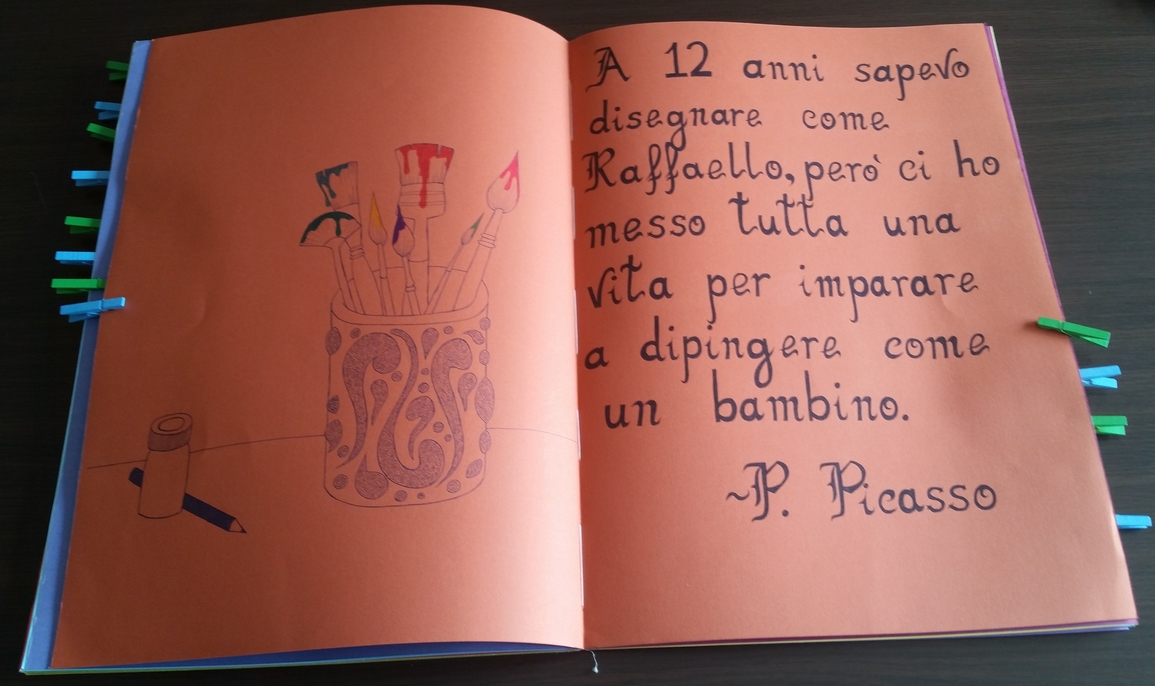 A 12 anni sapevo
disegnare come
Raffaello, però ci ho
messo tutta una
vita per imparare
a dipingere come
un bambino.
~P. Picasso